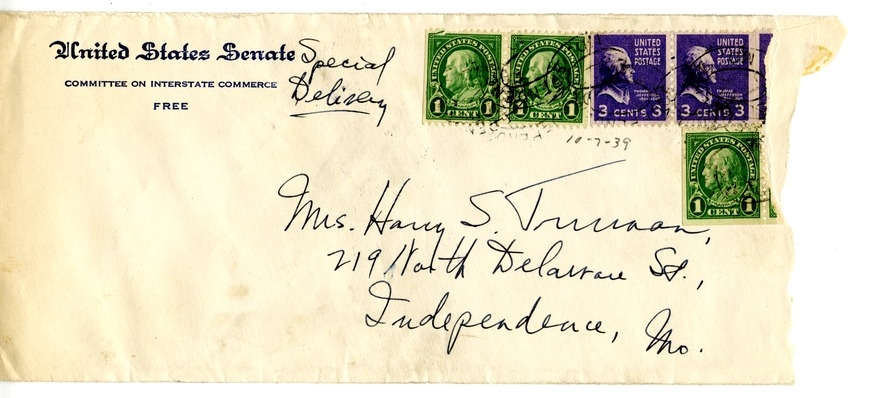 United States Senate
COMMITTEE ON INTERSTATE COMMERCE
FREE
Special
Delivery
UNITED STATES POSTAGE
1 CENT 1
UNITED STATES POSTAGE
1 CENT 1
UNITED
STATES
POSTAGE
THOMAS
JEFFERSON
3 CENTS 3
UNITED
STATES
POSTAGE
THOMAS
JEFFERSON
3 CENTS 3
10-7-39
UNITED STATES POSTAGE
1 CENT 1
Mrs. Harry S. Truman,
219 North Delaware St.,
Independence, Mo.